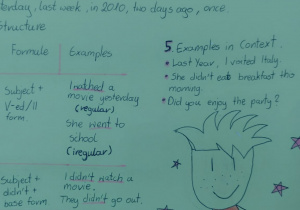 terday, last week, in 2010, two days ago, once.
Structure
Formule
Examples
Subject +
V-ed/II
form.
I watched a
movie yesterday
(regular)
She went to
school
(irregular)
Subject +
didn't +
base form
I didn't watch a
movie.
They didn't go out.
5. Examples in Context.
• Last Year, I visited Italy.
• She didn't eat breakfast this
morning.
• Did you enjoy the party?